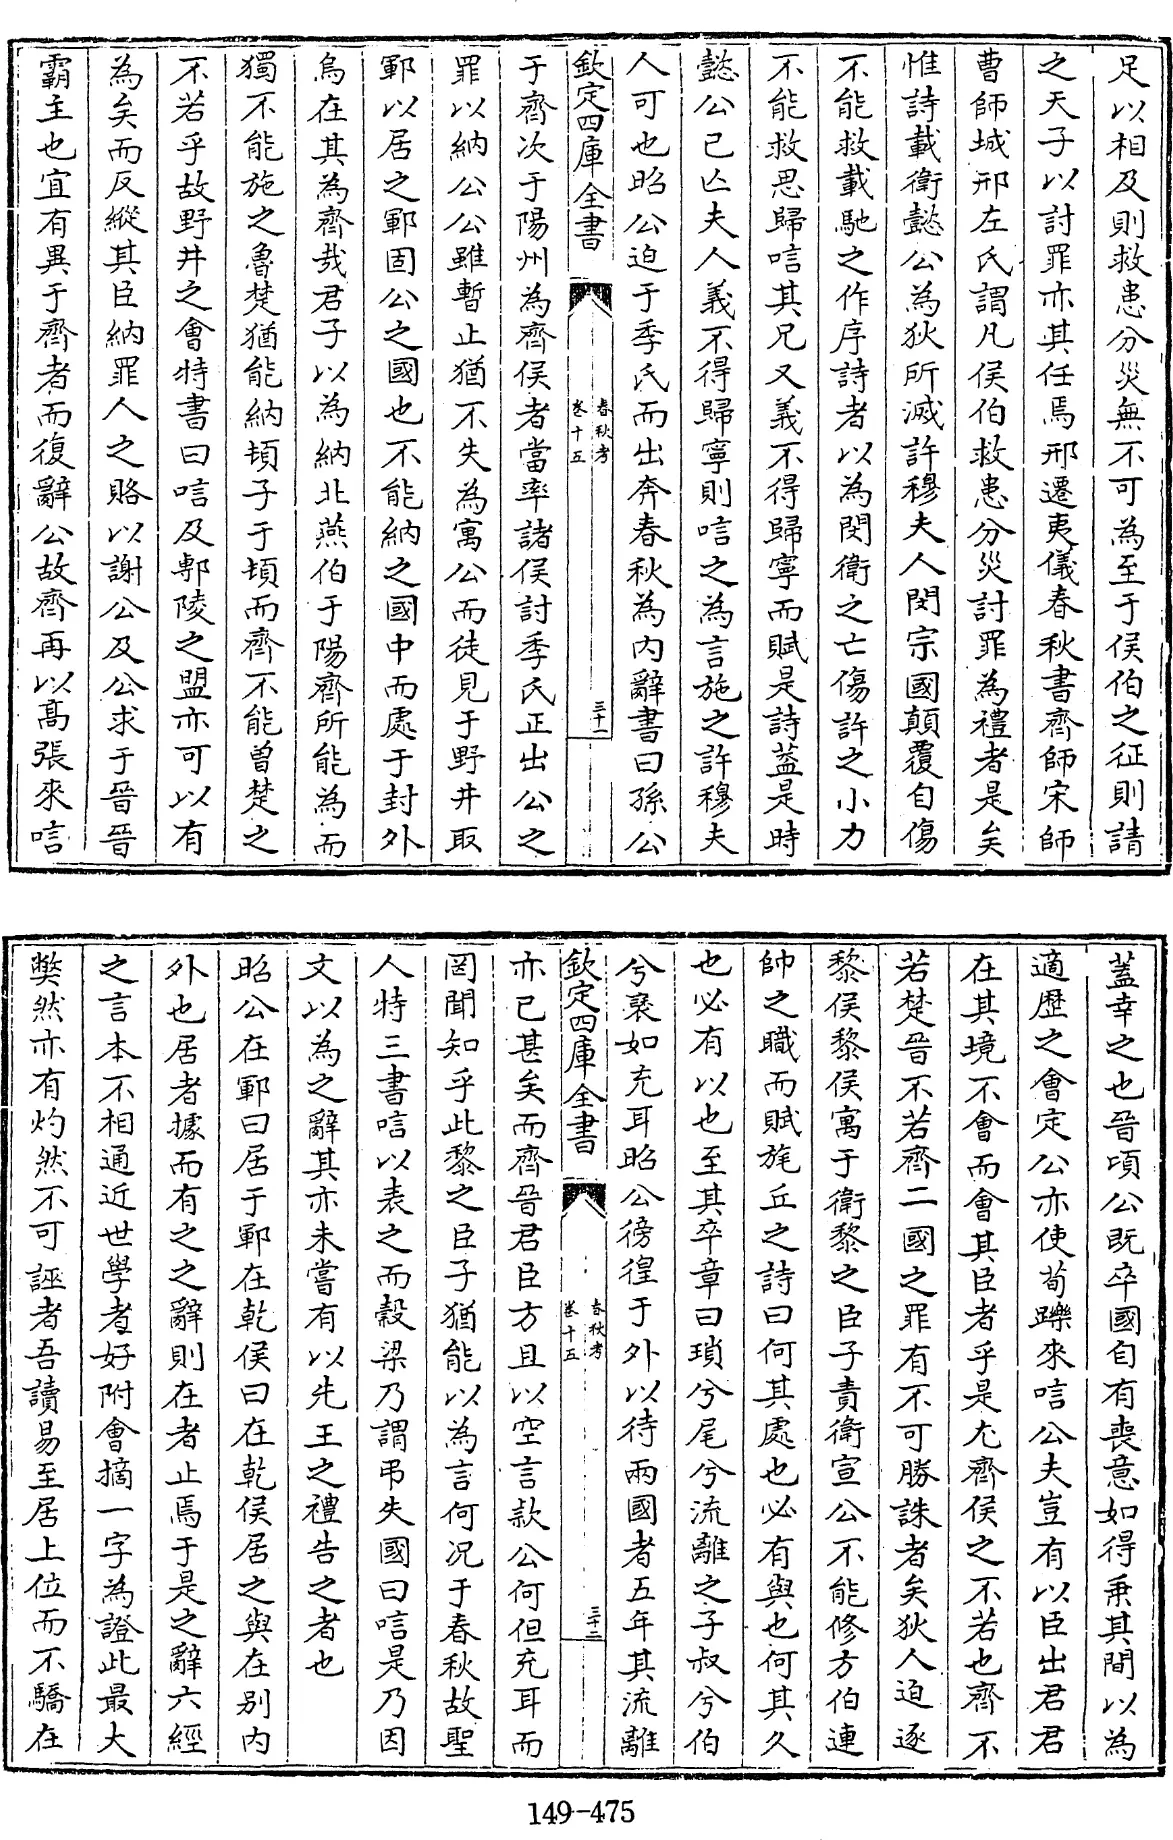 足以相及則救患分災無不可為至于侯伯之征則請
之天子以討罪亦其任焉邢遷夷儀春秋書齊師宋師
曹師城邢左氏謂凡侯伯救患分災討罪為禮者是矣
惟詩載衛懿公為狄所滅許穆夫人閔宗國顛覆自傷
不能救載馳之作序詩者以為閔衛之亡傷許之小力
不能救思歸唁其兄又義不得歸寧而賦是詩葢是時
懿公已亾夫人義不得歸寧則唁之為言施之許穆夫
人可也昭公迫于季氏而出奔春秋為内辭書曰孫公
欽定四庫全書
春秋考
卷十五
三十一
于齊次于陽州為齊侯者當率諸侯討季氏正出公之
罪以納公公雖暫止猶不失為寓公而徒見于野井取
鄆以居之鄆固公之國也不能納之國中而處于封外
烏在其為齊哉君子以為納北燕伯于陽齊所能為而
獨不能施之魯楚猶能納頓子于頓而齊不能曾楚之
不若乎故野井之會特書曰唁及鄟陵之盟亦可以有
為矣而反縱其臣納罪人之賂以謝公及公求于晉晉
霸主也宜有異于齊者而復辭公故齊再以髙張來唁
蓋幸之也晉頃公既卒國自有喪意如得乗其間以為
適歴之會定公亦使荀躒來唁公夫豈有以臣出君君
在其境不會而會其臣者乎是尤齊侯之不若也齊不
若楚晉不若齊二國之罪有不可勝誅者矣狄人迫逐
黎侯黎侯寓于衛黎之臣子責衛宣公不能修方伯連
帥之職而賦旄丘之詩曰何其處也必有與也何其久
也必有以也至其卒章曰瑣兮尾兮流離之子叔兮伯
兮褎如充耳昭公徬徨于外以待兩國者五年其流離
欽定四庫全書
春秋考
卷十五
三十二
亦已甚矣而齊晉君臣方且以空言款公何但充耳而
罔聞知乎此黎之臣子猶能以為言何况于春秋故聖
人特三書唁以表之而穀梁乃謂弔失國曰唁是乃因
文以為之辭其亦未嘗有以先王之禮告之者也
昭公在鄆曰居于鄆在乾侯曰在乾侯居之與在别内
外也居者據而有之之辭則在者止焉于是之辭六經
之言本不相通近世學者好附會摘一字為證此最大
弊然亦有灼然不可誣者吾讀易至居上位而不驕在
149-475